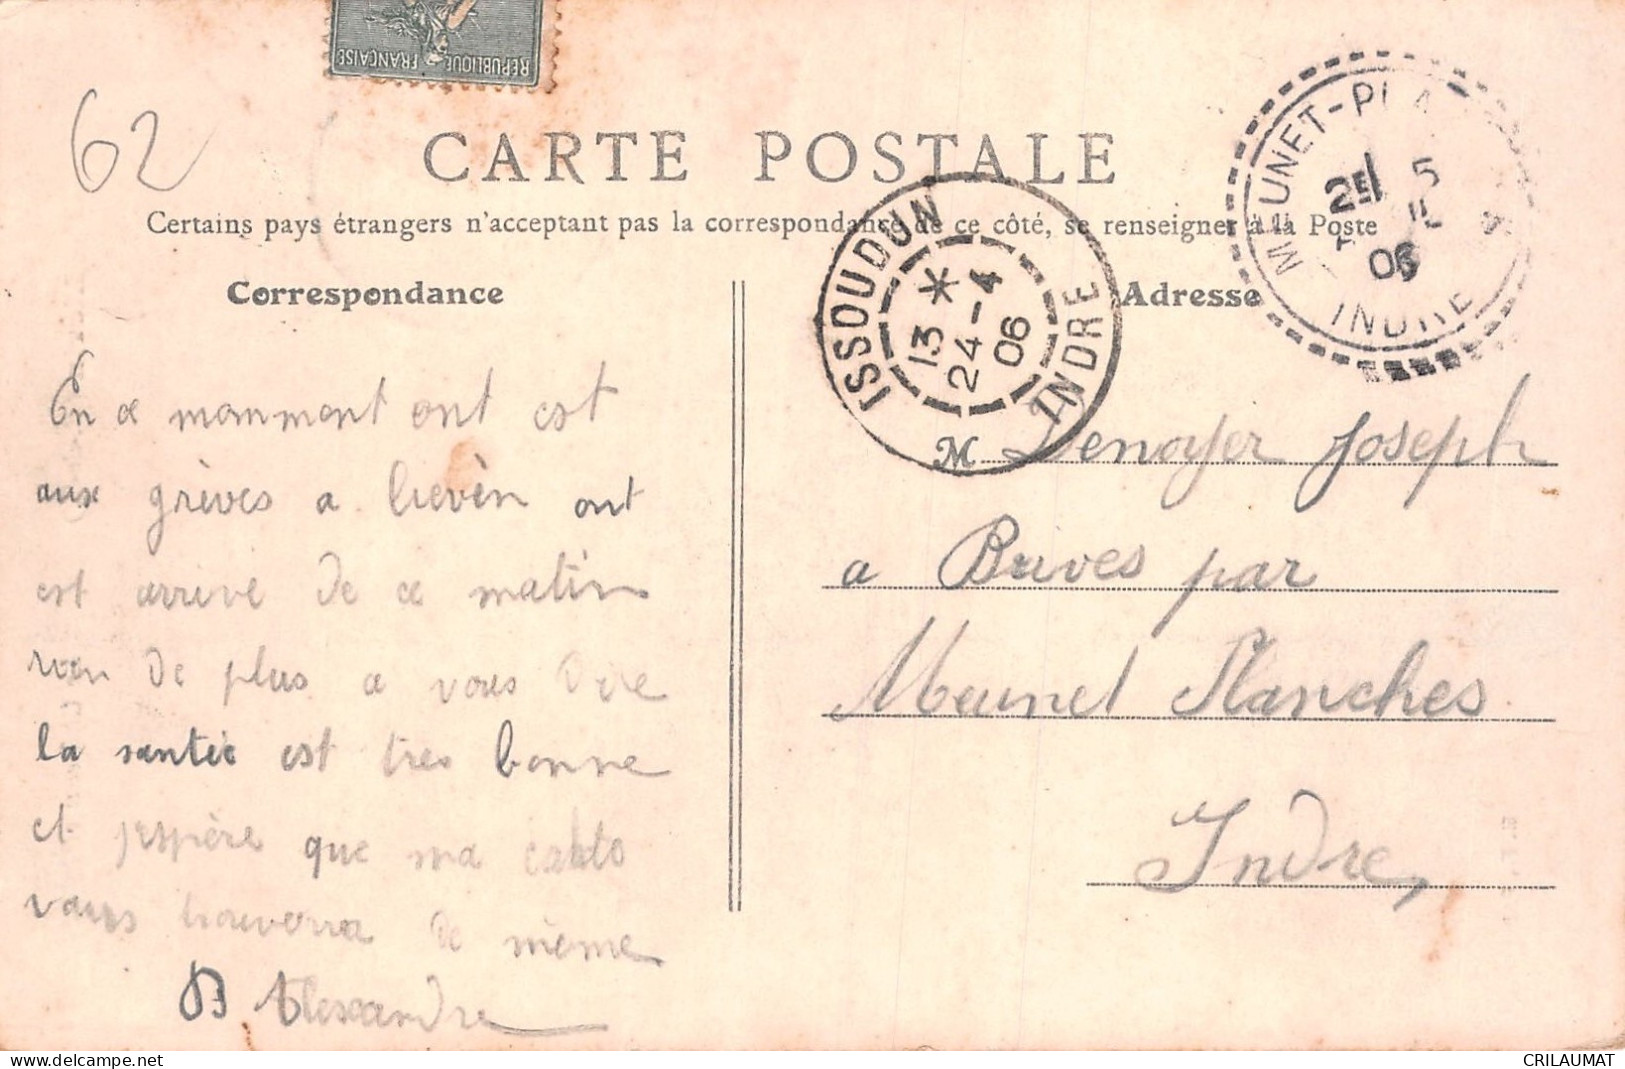 REPUBLIQUE FRANÇAISE
62
CARTE POSTALE
Certains pays étrangers n'acceptant pas la correspondance de ce côté, se renseigner à la Poste
MEUNET-PLA
2E 5
06
INDRE
ISSOUDUN
13 *
24-4
06
INDRE
Correspondance
En ce momment ont est
aux grèves a lievèn ont
est arrivé de ce matin
rien de plus a vous dire
la santée est tres bonne
et j'espère que ma carte
vous trouverra de mème
Alexandre
Adresse
M Denoyer Joseph
a Brives par
Meunet Planches
Indre,
delcampe.net
CRILAUMAT